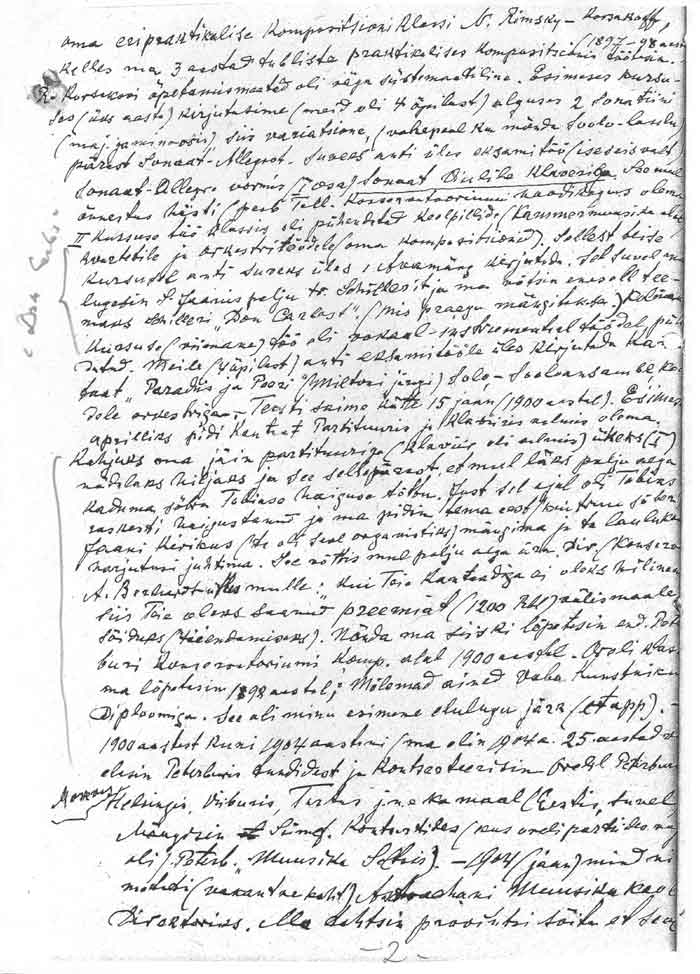 oma eripraktikalise Kompositsiooni Klassi N. Rimsky-Korsakoff,
Kelles ma 3 aastad tublisti praktikalises Kompositsiooni töötasin. (1897-98
R. Korsakovi õpetamismaated oli väga süstemaatiline. Esimeses Kursu-
ses (üks aasta) Kirjutasime (meid oli 4 õpilast) alguses 2 Sonatiini
(maj. ja minooris), siis variatsione, (vahepeal ka mõnda Soolo-laulu)
pärast Sonaat-Allegrot. Suveks anti üles eksamitöö (iseseisvalt
Sonaat-Allegro vormis (I osa) Sonaat Viiulile Klaveriga. See mul
õnnestus hästi (peab Tall. Konservatooriumi raamatukogus olema
II Kursuse töö Klassis oli pühendatud Keelpillide (Kammermuusika
Kvartetile ja orkestritöödele (oma Kompositsioonid). Sellest teise
Kursusel anti suveks üles 1 Avamäng Kirjutada. Sel suvel ma
lugesin palju Schillerit ja ma võtsin enesele tee-
maks Schilleri „Don Carlost", (mis praegu mängitakse). Kolmas
Kursuse (viimane) töö oli vokaal-instrumentaal töödel püh-
datud. Meile (4 õpilast) anti eksamitööle üles Kirjutada Kan-
taat „Paradiis ja Peeri" (Miltoni järgi) Solo-Sooloansamble, Koo-
dele orkestriga. Teksti saime Kätte 15 jaan. (1900 aastal). Esimes
aprilliks pidi Kantaat Partituuris ja Klaviiris valmis olema.
Kahjuks ma jäin partituuriga (Klaviir oli valmis) üheks (1)
nädalaks hiljaks ja see sellepärast, et mul läks palju aega
Kaduma sõbra Tobiase haiguse tõttu. Just sel ajal oli Tobias
raskesti haigustanud ja ma pidin tema eest, kui truu sõber
Jaani Kirikus (ta oli seal organistiks) mängima ja ta laulukoo
harjutusi juhtima. See võttis mul palju aega ära. Dir. (Konserv.
A. Bernhard ütles mulle: „Kui Teie Kantaadiga ei oleks hilinenud
siis Teie oleks saanud preemiat (1200 Rbl) välismaale
sõiduks (täiendamiseks). Nõnda ma siiski lõpetasin end. Pet
buri Konservatooriumi Komp. alal 1900 aastal. Oreli klas
ma lõpetasin 1898 aastal; Mõlemad ained Vaba Kunstniku
Diploomiga. See oli minu esimene elulugu järk (etapp). -
1900 aastast Kuni 1904 aastani (ma olin 1904 a. 25 aastad v
elasin Peterburis tundidest ja Kontserteerisin Orelil Peterburi
Moskvas
Helsingis, Viiburis, Tartus j.n.e. ka maal (Eestis, suvel
Mängisin Sümf. Kontsertides (kus oreli partiides
oli). Peterb. „Muusika Seltsis). - 1904 (jaan.) mind ni
mitati (vakantne koht) Astrachani Muusika Kool
Direktoriks. Ma tahtsin provintsi sõita et
- 2 -